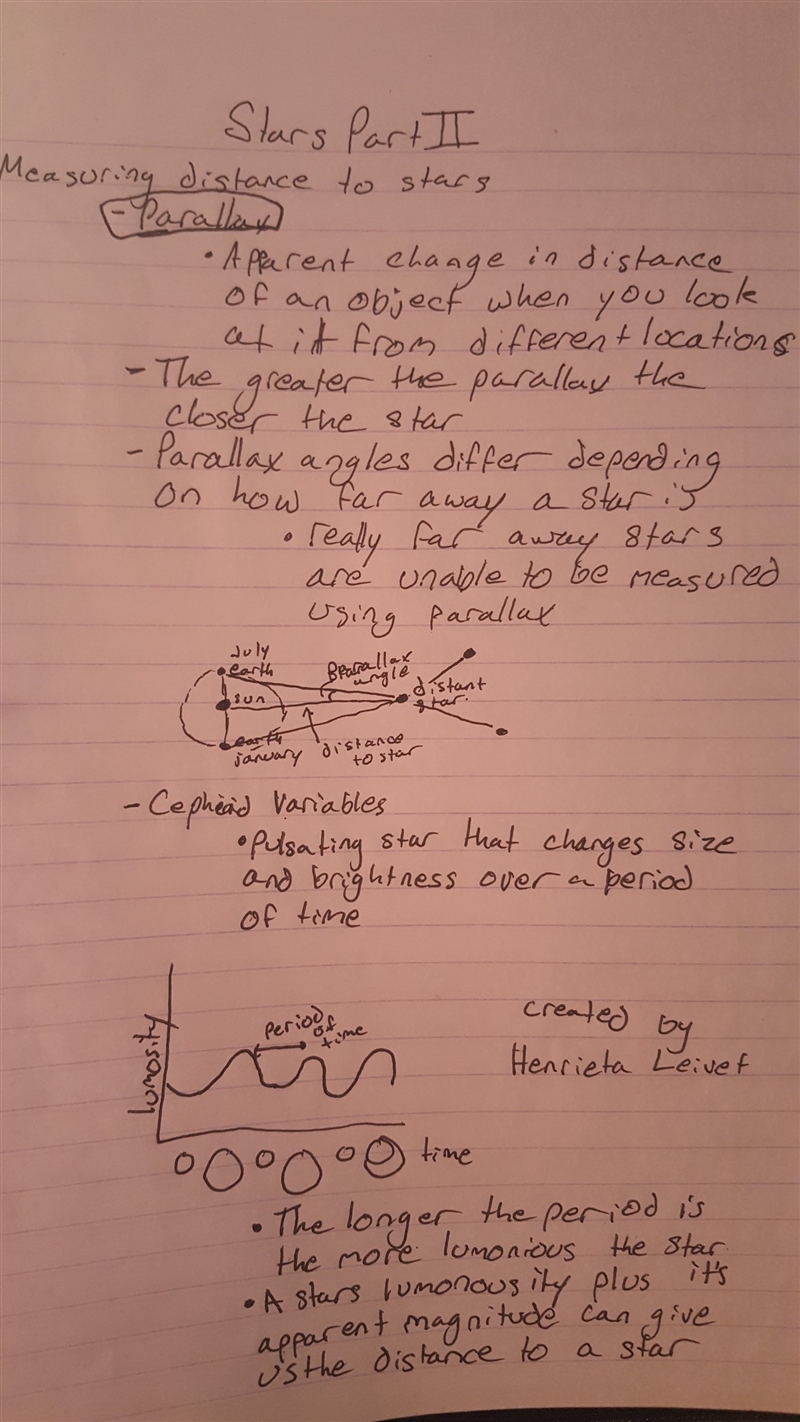 Stars Part II
Measuring distance to stars
- Parallax
• Apparent change in distance
of an object when you look
at it from different locations
- The greater the parallax the
closer the star
- Parallax angles differ depending
on how far away a star is
• really far away stars
are unable to be measured
using parallax
July
earth
Parallax
angle
distant
star.
sun
earth
january
distance
to star
- Cepheid Variables
• Pulsating star that changes size
and brightness over a period
of time
period of
time
lumosity
created by
Henrieta Leivet
time
• The longer the period is
the more lumonious the star
• A stars lumonousity plus it's
apparent magnitude can give
us the distance to a star